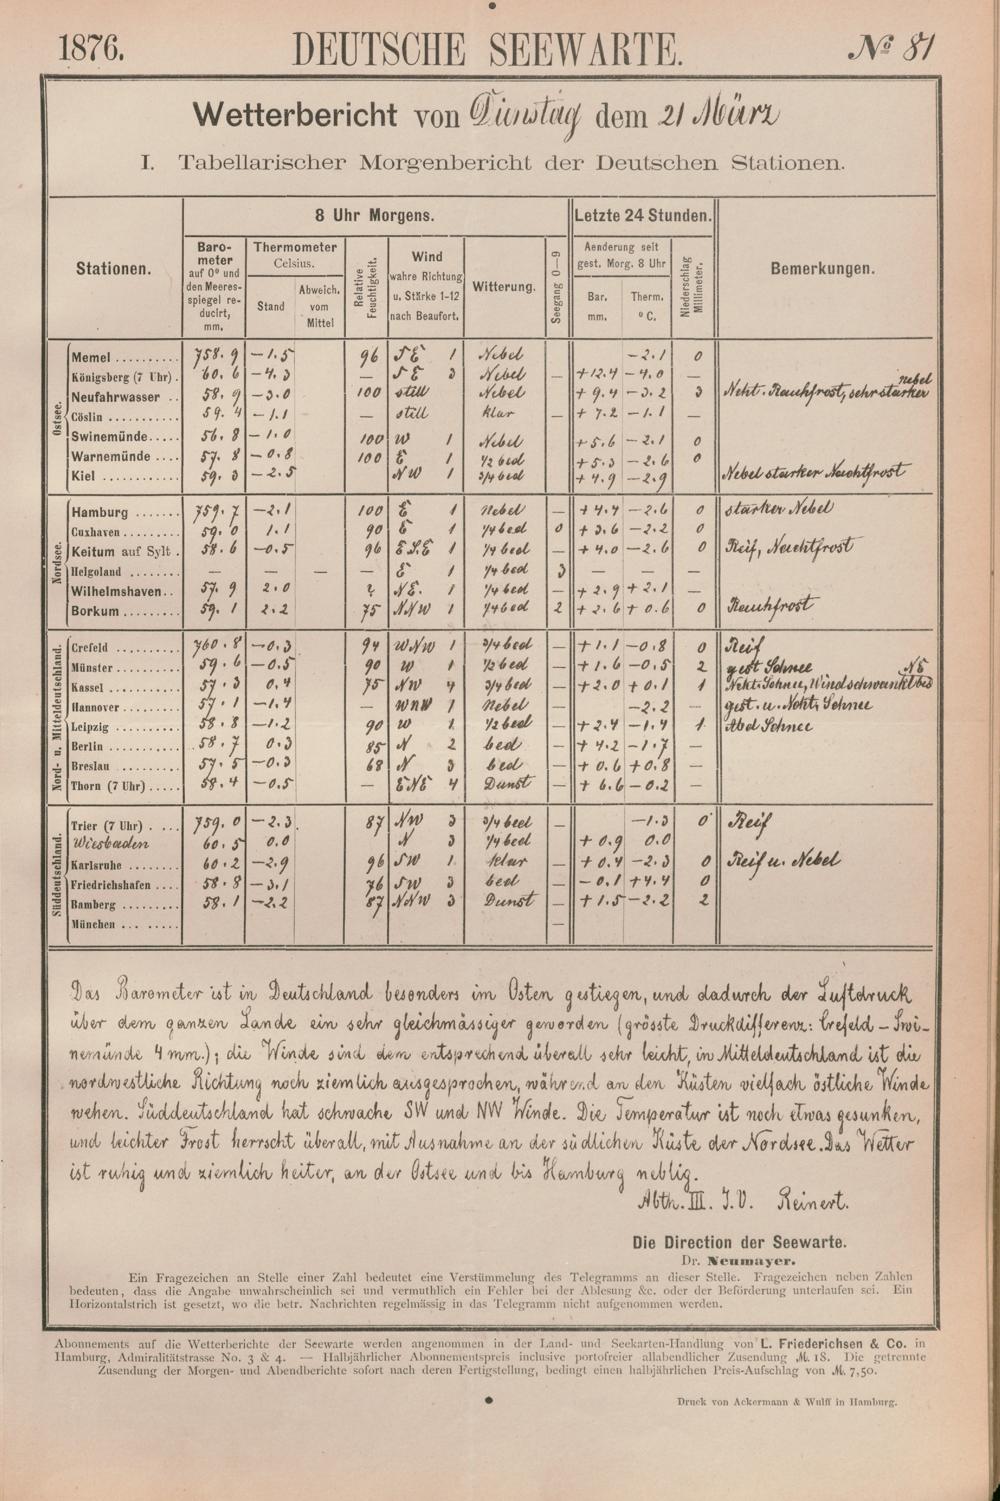 1876. DEUTSCHE SEEWARTE. № 81
Wetterbericht von Dienstag dem 21 März
I. Tabellarischer Morgenbericht der Deutschen Stationen.
Stationen. 8 Uhr Morgens. Letzte 24 Stunden. Bemerkungen.
Barometer auf 0° und den Meeresspiegel reducirt, mm. Thermometer Celsius. Stand Abweich. vom Mittel Relative Feuchtigkeit. Wind wahre Richtung u. Stärke 1-12 nach Beaufort. Witterung. Seegang 0-9 Aenderung seit gest. Morg. 8 Uhr Bar. mm. Therm. ° C. Niederschlag Millimeter.
Ostsee.
Memel .......... 758.9 -1.5 96 SE 1 Nebel — -2.1 0
Königsberg (7 Uhr) . 60.6 -4.3 — SE 3 Nebel — +12.4 -4.0 —
Neufahrwasser .. 58.9 -3.0 100 still Nebel — +9.4 -3.2 3 Ncht. Rauhfrost, sehr starker nebel
Cöslin .......... 59.4 -1.1 — still klar — +7.2 -1.1 —
Swinemünde..... 56.8 -1.0 100 W 1 Nebel +5.6 -2.1 0
Warnemünde .... 57.8 -0.8 100 E 1 1/2 bed +5.3 -2.6 0
Kiel ........... 59.3 -2.5 NW 1 3/4 bed +4.9 -2.9 Nebel starker Nachtfrost
Nordsee.
Hamburg ....... 759.7 -2.1 100 E 1 Nebel — +4.4 -2.6 0 starker Nebel
Cuxhaven ........ 59.0 1.1 90 E 1 1/4 bed 0 +3.6 -2.2 0
Keitum auf Sylt . 58.6 -0.5 96 ESE 1 1/4 bed — +4.0 -2.6 0 Reif, Nachtfrost
Helgoland ........ — — — — E 1 1/4 bed 3 — — —
Wilhelmshaven.. 57.9 2.0 ? NE. 1 1/4 bed — +2.9 +2.1 —
Borkum ......... 59.1 2.2 75 NNW 1 1/4 bed 2 +2.6 +0.6 0 Rauhfrost
Nord- u. Mitteldeutschland.
Crefeld .......... 760.8 -0.3 94 WNW 1 3/4 bed — +1.1 -0.8 0 Reif
Münster ......... 59.6 -0.5 90 W 1 1/2 bed — +1.6 -0.5 2 gest Schnee
Kassel .......... 57.3 0.4 75 NW 4 3/4 bed — +2.0 +0.1 1 Ncht. Schnee, Wind schwankt bis NE
Hannover ........ 57.1 -1.4 — WNW 1 Nebel — -2.2 — gest. u. Ncht. Schnee
Leipzig .......... 58.8 -1.2 90 W 1 1/2 bed — +2.4 -1.4 1 Abd Schnee
Berlin .......... 58.7 0.3 85 N 2 bed — +4.2 -1.7 —
Breslau ......... 57.5 -0.3 68 N 3 bed — +0.6 +0.8 —
Thorn (7 Uhr) ..... 58.4 -0.5 — ENE 4 Dunst — +6.6 -0.2 —
Süddeutschland.
Trier (7 Uhr) . ... 759.0 -2.3 87 NW 3 3/4 bed -1.3 0 Reif
Wiesbaden 60.5 0.0 N 3 1/4 bed — +0.9 0.0
Karlsruhe ........ 60.2 -2.9 96 SW 1 klar — +0.4 -2.3 0 Reif u. Nebel
Friedrichshafen .... 58.8 -3.1 76 SW 3 bed — -0.1 +4.4 0
Bamberg ......... 58.1 -2.2 87 NNW 3 Dunst — +1.5 -2.2 2
München ... ...... —
Das Barometer ist in Deutschland besonders im Osten gestiegen, und dadurch der Luftdruck
über dem ganzen Lande ein sehr gleichmässiger geworden (grösste Druckdifferenz: Crefeld - Swi-
nemünde 4 mm.); die Winde sind dem entsprechend überall sehr leicht, in Mitteldeutschland ist die
nordwestliche Richtung noch ziemlich ausgesprochen, während an den Küsten vielfach östliche Winde
wehen. Süddeutschland hat schwache SW und NW Winde. Die Temperatur ist noch etwas gesunken,
und leichter Frost herrscht überall, mit Ausnahme an der südlichen Küste der Nordsee. Das Wetter
ist ruhig und ziemlich heiter, an der Ostsee und bis Hamburg neblig.
Abth. III. I.V. Reinert.
Die Direction der Seewarte.
Dr. Neumayer.
Ein Fragezeichen an Stelle einer Zahl bedeutet eine Verstümmelung des Telegramms an dieser Stelle. Fragezeichen neben Zahlen
bedeuten, dass die Angabe unwahrscheinlich sei und vermuthlich ein Fehler bei der Ablesung &c. oder der Beförderung unterlaufen sei. Ein
Horizontalstrich ist gesetzt, wo die betr. Nachrichten regelmässig in das Telegramm nicht aufgenommen werden.
Abonnements auf die Wetterberichte der Seewarte werden angenommen in der Land- und Seekarten-Handlung von L. Friederichsen & Co. in
Hamburg, Admiralitätstrasse No. 3 & 4. — Halbjährlicher Abonnementspreis inclusive portofreier allabendlicher Zusendung M. 18. Die getrennte
Zusendung der Morgen- und Abendberichte sofort nach deren Fertigstellung, bedingt einen halbjährlichen Preis-Aufschlag von M. 7,50.
Druck von Ackermann & Wulff in Hamburg.